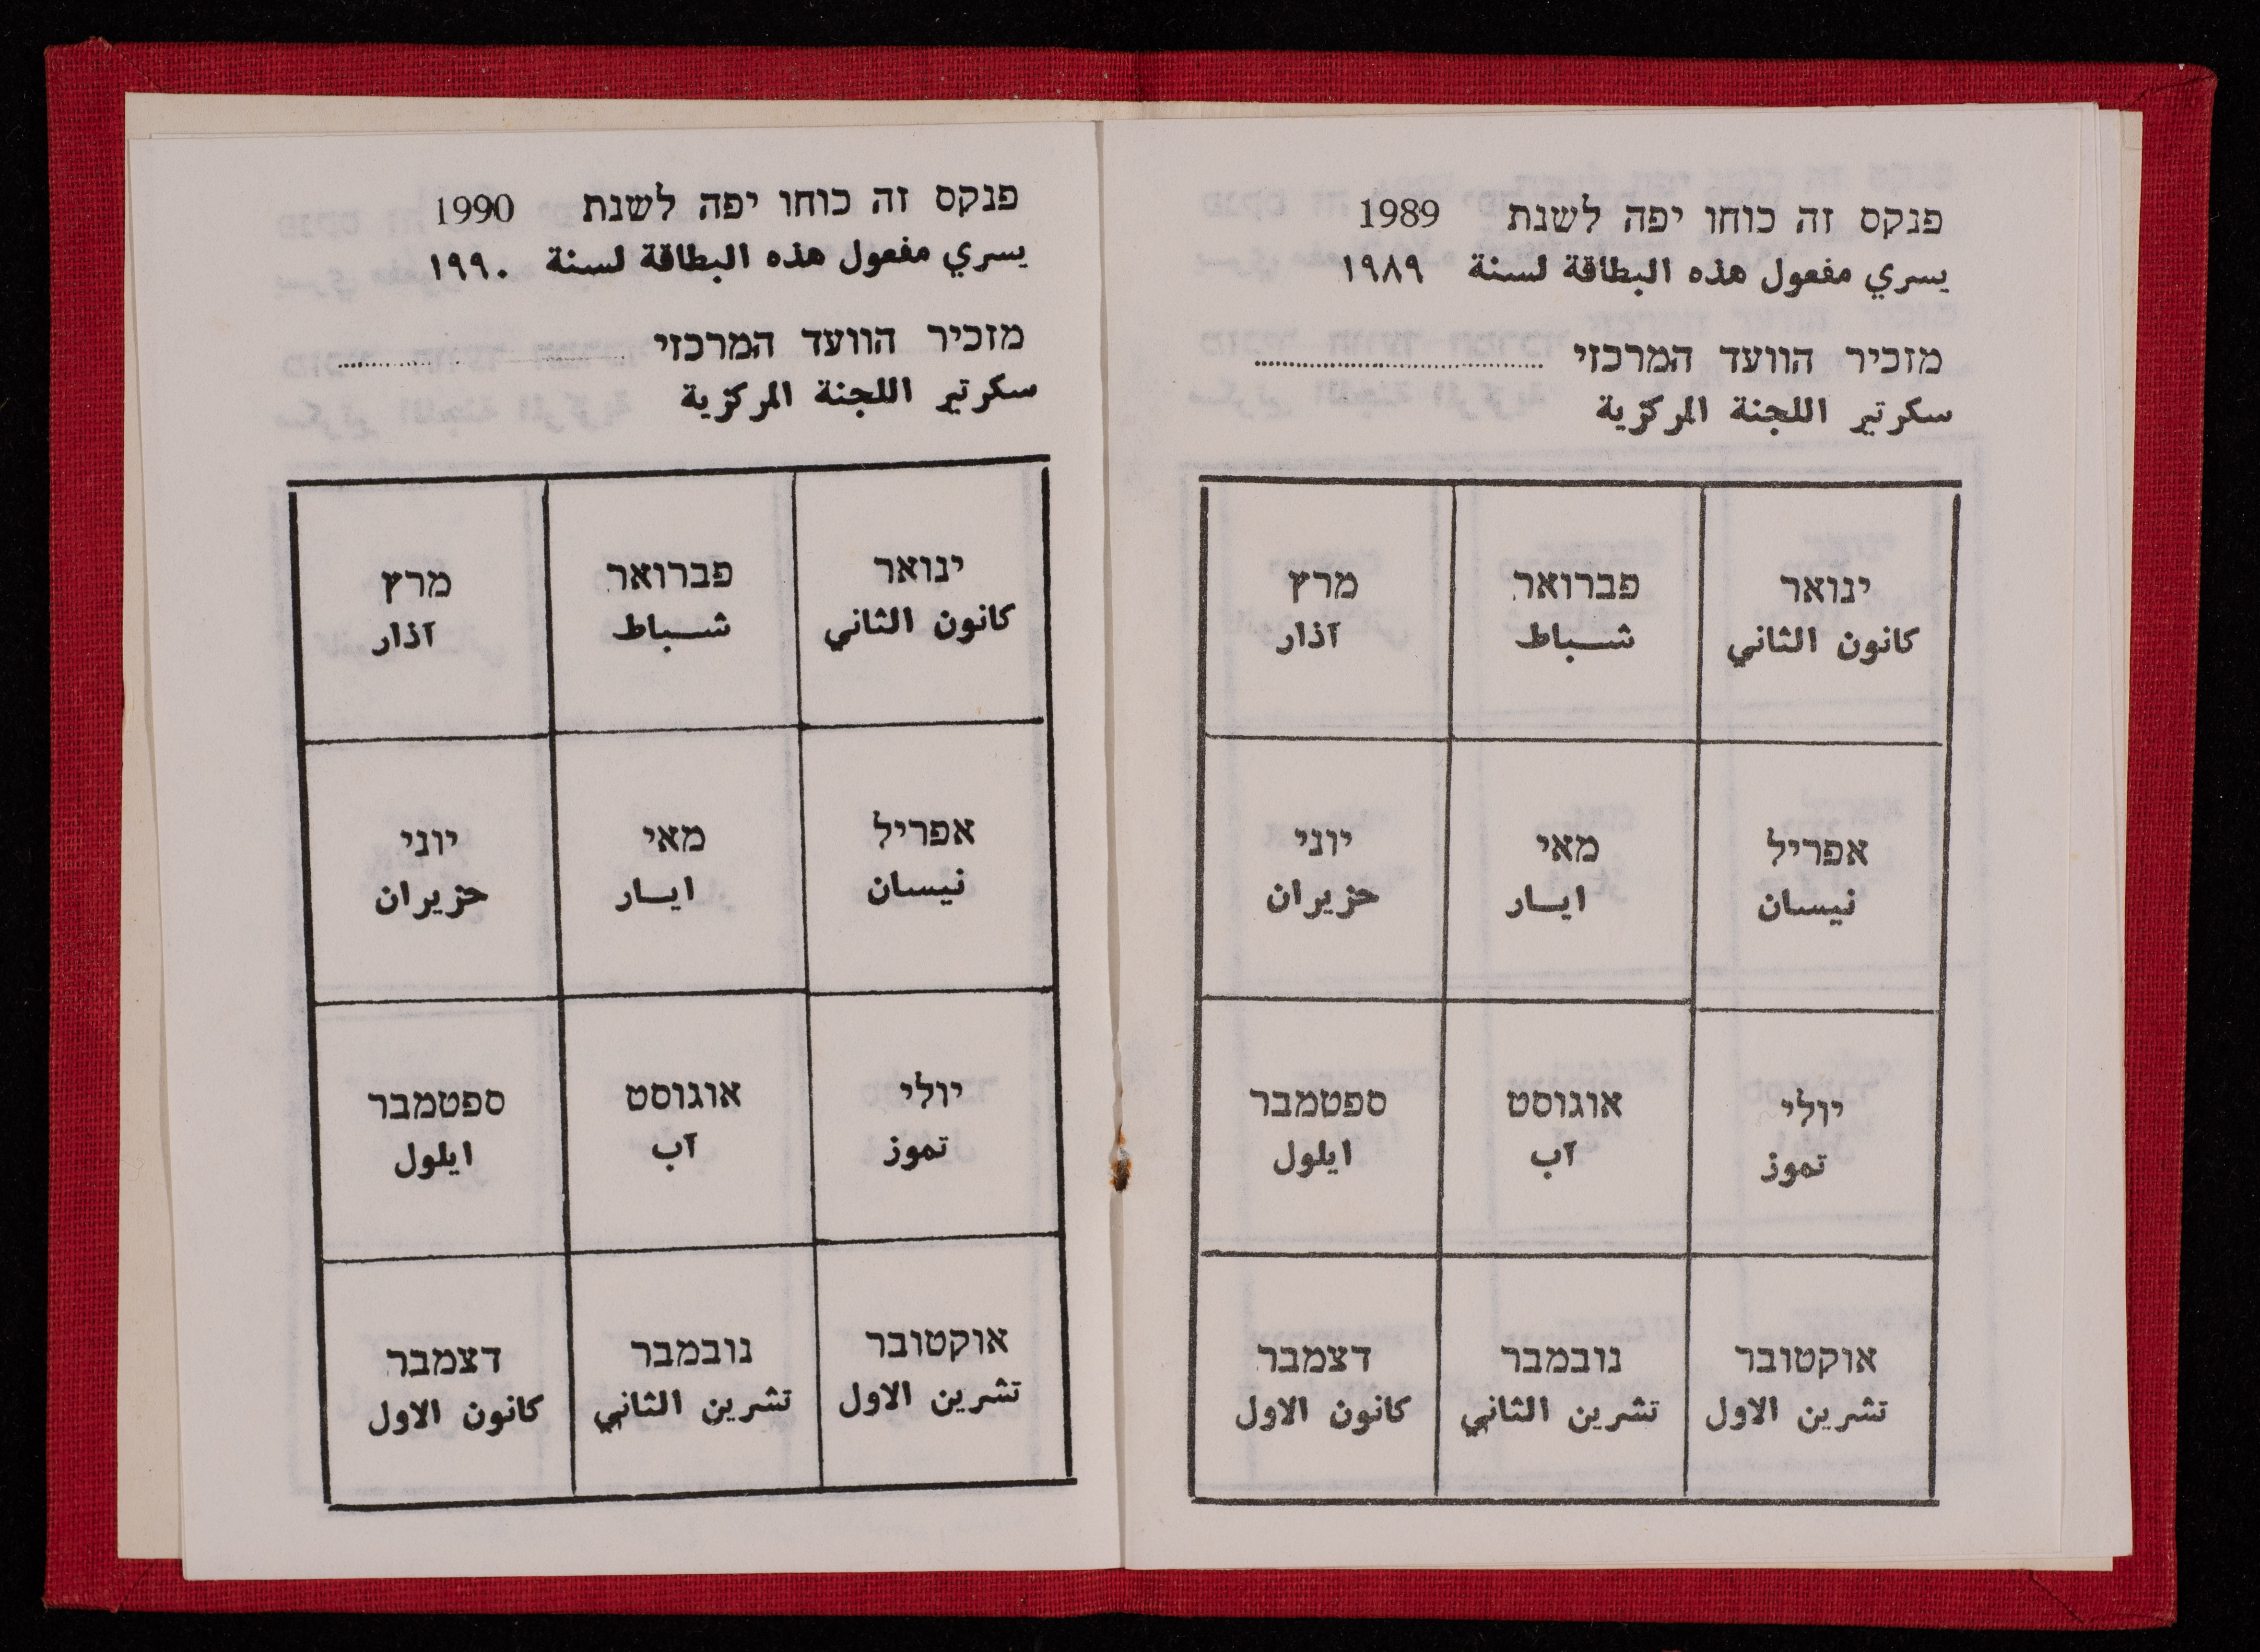 פנקס זה כוחו יפה לשנת 1989
يسري مفعول هذه البطاقة لسنة ١٩٨٩
מזכיר הוועד המרכזי
سكرتير اللجنة المركزية
ינואר פברואר מרץ
كانون الثاني شباط آذار
אפריל מאי יוני
نيسان ايار حزيران
יולי אוגוסט ספטמבר
تموز آب ايلول
אוקטובר נובמבר דצמבר
تشرين الاول تشرين الثاني كانون الاول
פנקס זה כוחו יפה לשנת 1990
يسري مفعول هذه البطاقة لسنة ١٩٩٠
מזכיר הוועד המרכזי
سكرتير اللجنة المركزية
ינואר פברואר מרץ
كانون الثاني شباط آذار
אפריל מאי יוני
نيسان ايار حزيران
יולי אוגוסט ספטמבר
تموز آب ايلول
אוקטובר נובמבר דצמבר
تشرين الاول تشرين الثاني كانون الاول